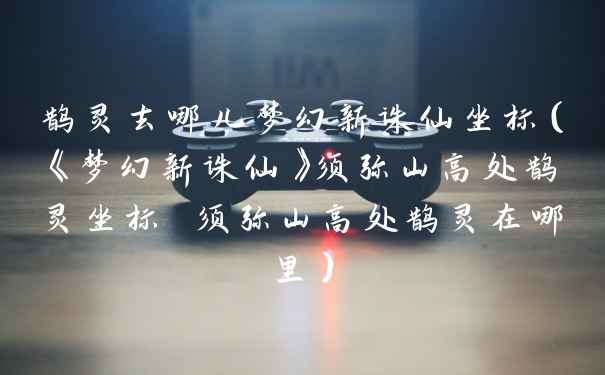 鹊灵去哪儿梦幻新诛仙坐标(
《梦幻新诛仙》须弥山高处鹊
灵坐标 须弥山高处鹊灵在哪
里)